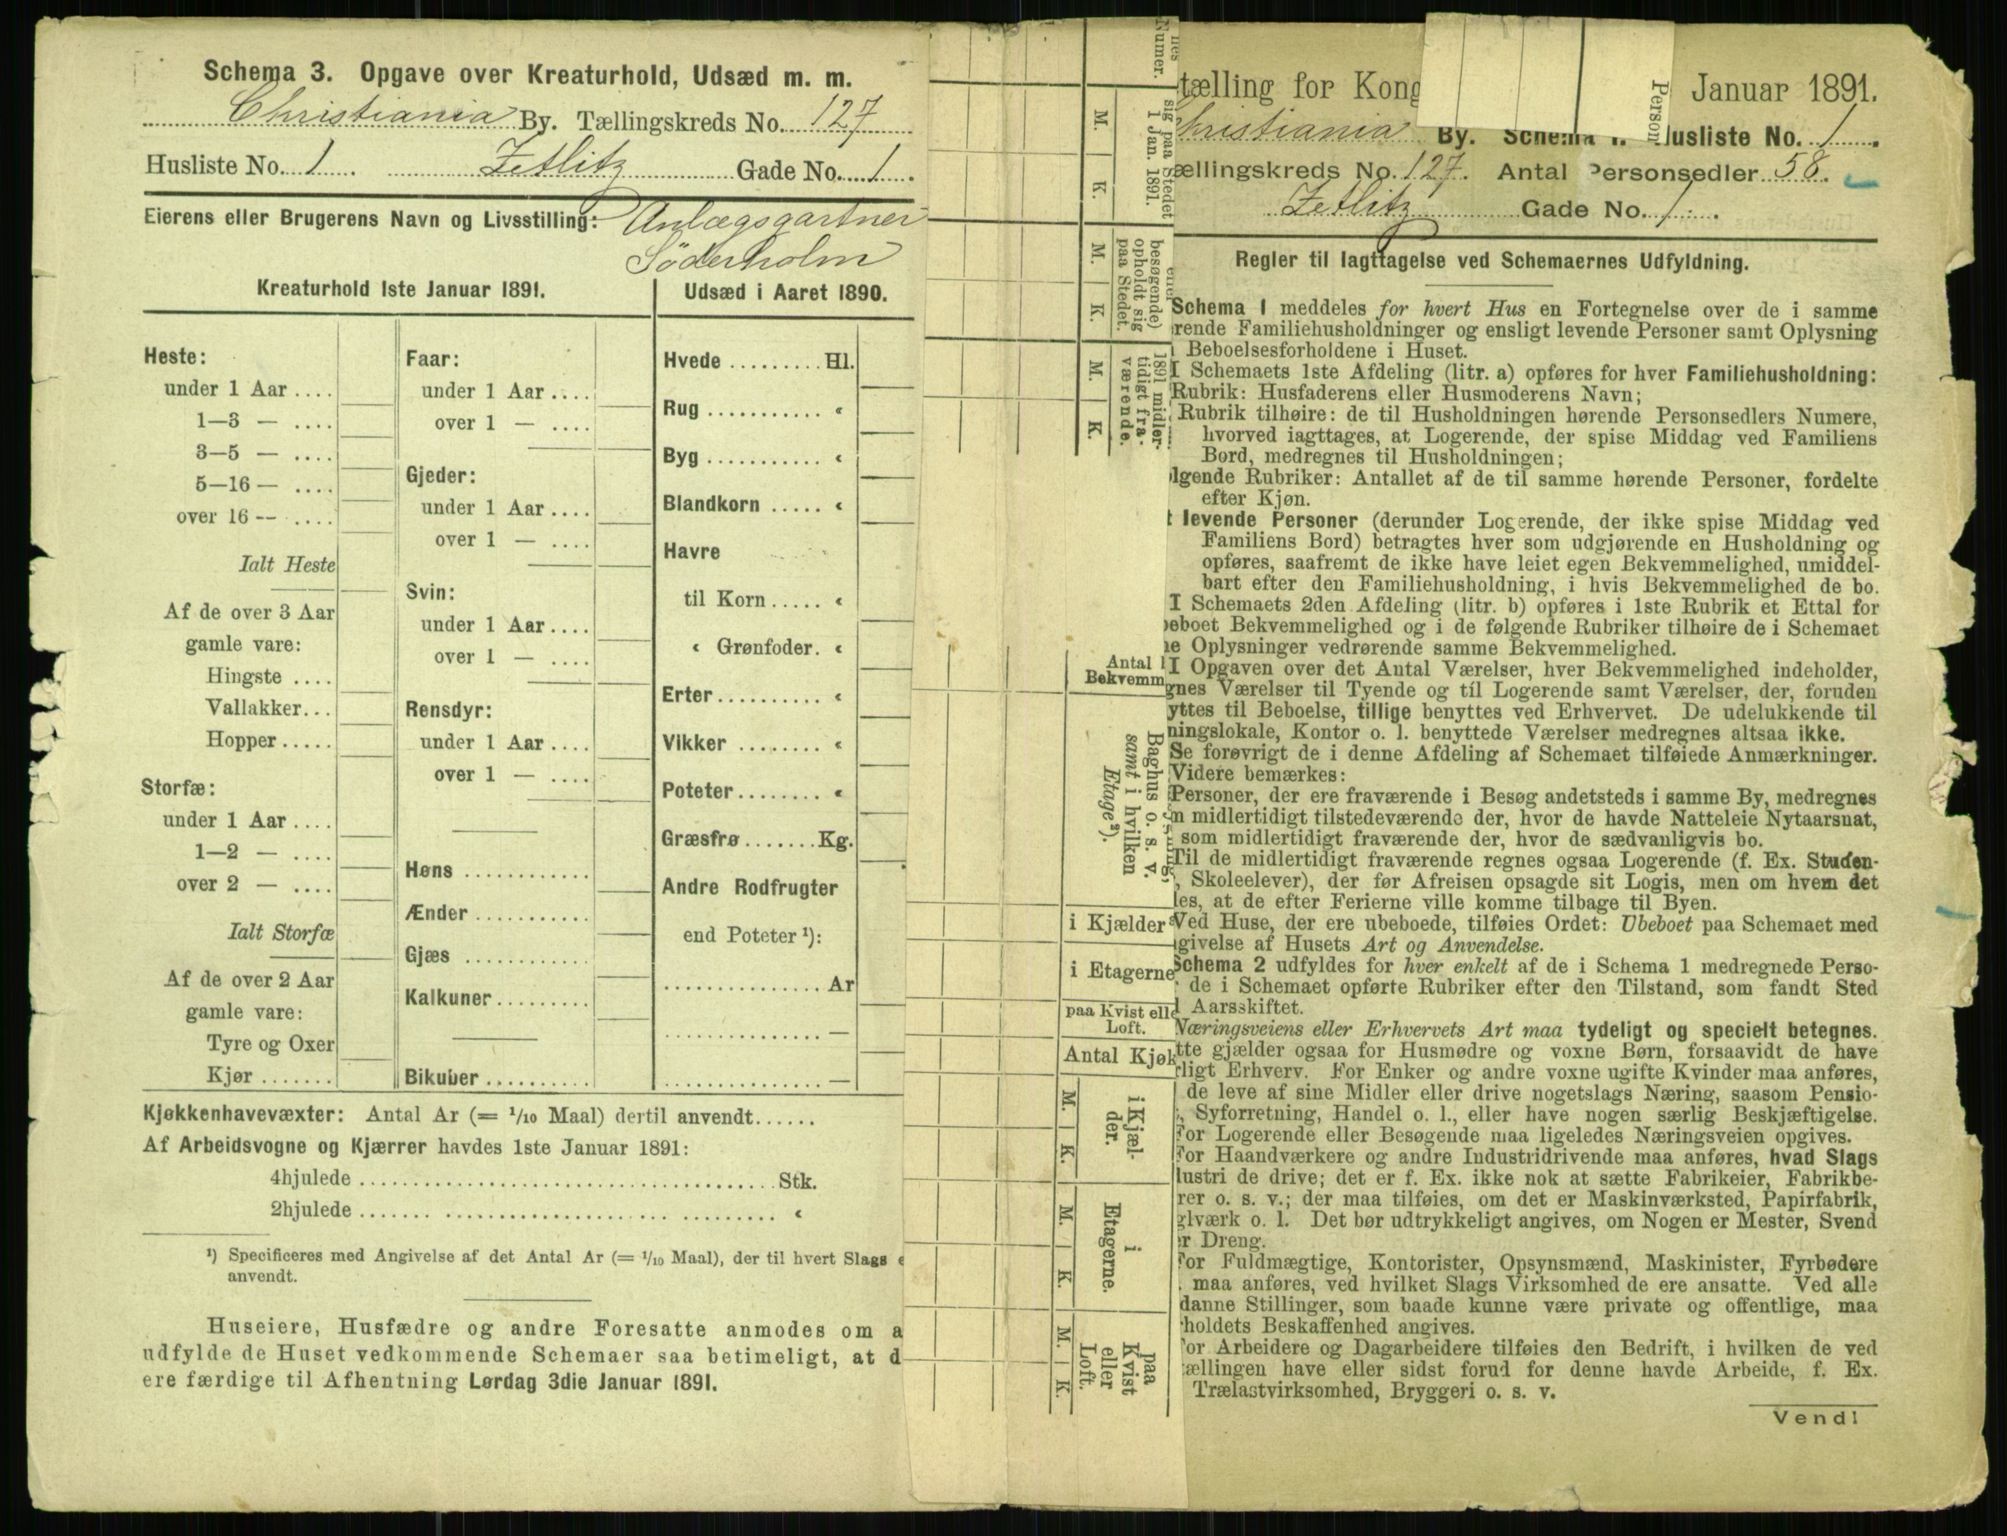 Schema 3. Opgave over Kreaturhold, Udsæd m. m.
Christiania By. Tællingskreds No. 127
Husliste No. 1 Zetlitz Gade No. 1.
Eierens eller Brugerens Navn og Livsstilling: Anlægsgartner
Söderholm
Kreaturhold 1ste Januar 1891.
Heste:
under 1 Aar ....
1—3 — ....
3—5 — ....
5—16 — ....
over 16 — ....
Ialt Heste
Af de over 3 Aar
gamle vare:
Hingste ....
Vallakker...
Hopper .....
Storfæ:
under 1 Aar ....
1—2 — ....
over 2 — ....
Ialt Storfæ
Af de over 2 Aar
gamle vare:
Tyre og Oxer
Kjør .......
Faar:
under 1 Aar ....
over 1 — ....
Gjeder:
under 1 Aar ....
over 1 — ....
Svin:
under 1 Aar ....
over 1 — ....
Rensdyr:
under 1 Aar ....
over 1 — ....
Høns ............
Ænder ...........
Gjæs ............
Kalkuner.........
Bikuber ..........
Udsæd i Aaret 1890.
Hvede ......... Hl.
Rug ........... «
Byg ........... «
Blandkorn ..... «
Havre
til Korn ..... «
« Grønfoder. «
Erter .......... «
Vikker ........ «
Poteter ........ «
Græsfrø ....... Kg.
Andre Rodfrugter
end Poteter ¹):
............... Ar
............... —
............... —
Kjøkkenhavevæxter: Antal Ar (= 1/10 Maal) dertil anvendt......
Af Arbeidsvogne og Kjærrer havdes 1ste Januar 1891:
4hjulede ........................................ Stk.
2hjulede ........................................ «
¹) Specificeres med Angivelse af det Antal Ar (= 1/10 Maal), der til hvert Slags e
anvendt.
Huseiere, Husfædre og andre Foresatte anmodes om a
udfylde de Huset vedkommende Schemaer saa betimeligt, at d
ere færdige til Afhentning Lørdag 3die Januar 1891.
nes
Numer.
sig paa Stedet
1 Jan. 1891.
M.
K.
besøgende)
opholdt sig
paa Stedet.
M.
K.
1891 midler-
tidigt fra-
værende.
M.
K.
Antal
Bekvemm
Baghus o. s. v.
samt i hvilken
Etage²).
i Kjælder
i Etagerne
paa Kvist elle
Loft.
Antal Kjøk
i Kjæl-
der.
M.
K.
i
Etagerne.
M.
K.
paa
Kvist
eller
Loft.
M.
K.
Person
tælling for Kong Januar 1891.
Christiania By. Schema 1. Husliste No. 1.
ællingskreds No. 127. Antal Personsedler 58.
Zetlitz Gade No. 1.
Regler til Iagttagelse ved Schemaernes Udfyldning.
Schema 1 meddeles for hvert Hus en Fortegnelse over de i samme
rende Familiehusholdninger og ensligt levende Personer samt Oplysning
Beboelsesforholdene i Huset.
I Schemaets 1ste Afdeling (litr. a) opføres for hver Familiehusholdning:
Rubrik: Husfaderens eller Husmoderens Navn;
Rubrik tilhøire: de til Husholdningen hørende Personsedlers Numere,
hvorved iagttages, at Logerende, der spise Middag ved Familiens
Bord, medregnes til Husholdningen;
lgende Rubriker: Antallet af de til samme hørende Personer, fordelte
efter Kjøn.
t levende Personer (derunder Logerende, der ikke spise Middag ved
Familiens Bord) betragtes hver som udgjørende en Husholdning og
opføres, saafremt de ikke have leiet egen Bekvemmelighed, umiddel-
bart efter den Familiehusholdning, i hvis Bekvemmelighed de bo.
I Schemaets 2den Afdeling (litr. b) opføres i 1ste Rubrik et Ettal for
beboet Bekvemmelighed og i de følgende Rubriker tilhøire de i Schemaet
ne Oplysninger vedrørende samme Bekvemmelighed.
I Opgaven over det Antal Værelser, hver Bekvemmelighed indeholder,
gnes Værelser til Tyende og til Logerende samt Værelser, der, foruden
yttes til Beboelse, tillige benyttes ved Erhvervet. De udelukkende til
ningslokale, Kontor o. l. benyttede Værelser medregnes altsaa ikke.
Se forøvrigt de i denne Afdeling af Schemaet tilføiede Anmærkninger.
Videre bemærkes:
Personer, der ere fraværende i Besøg andetsteds i samme By, medregnes
m midlertidigt tilstedeværende der, hvor de havde Natteleie Nytaarsnat,
som midlertidigt fraværende der, hvor de sædvanligvis bo.
Til de midlertidigt fraværende regnes ogsaa Logerende (f. Ex. Studen-
, Skoleelever), der før Afreisen opsagde sit Logis, men om hvem det
les, at de efter Ferierne ville komme tilbage til Byen.
Ved Huse, der ere ubeboede, tilføies Ordet: Ubeboet paa Schemaet med
givelse af Husets Art og Anvendelse.
Schema 2 udfyldes for hver enkelt af de i Schema 1 medregnede Perso-
de i Schemaet opførte Rubriker efter den Tilstand, som fandt Sted
Aarsskiftet.
Næringsveiens eller Erhvervets Art maa tydeligt og specielt betegnes.
tte gjælder ogsaa for Husmødre og voxne Børn, forsaavidt de have
rligt Erhverv. For Enker og andre voxne ugifte Kvinder maa anføres,
de leve af sine Midler eller drive nogetslags Næring, saasom Pensio-
, Syforretning, Handel o. l., eller have nogen særlig Beskjæftigelse.
For Logerende eller Besøgende maa ligeledes Næringsveien opgives.
For Haandværkere og andre Industridrivende maa anføres, hvad Slags
lustri de drive; det er f. Ex. ikke nok at sætte Fabrikeier, Fabrikbe-
rer o. s. v.; der maa tilføies, om det er Maskinværksted, Papirfabrik,
glværk o. l. Det bør udtrykkeligt angives, om Nogen er Mester, Svend
r Dreng.
For Fuldmægtige, Kontorister, Opsynsmænd, Maskinister, Fyrbødere
. maa anføres, ved hvilket Slags Virksomhed de ere ansatte. Ved alle
danne Stillinger, som baade kunne være private og offentlige, maa
holdets Beskaffenhed angives.
For Arbeidere og Dagarbeidere tilføies den Bedrift, i hvilken de ved
ællingen have eller sidst forud for denne havde Arbeide, f. Ex.
Trælastvirksomhed, Bryggeri o. s. v.
Vend!